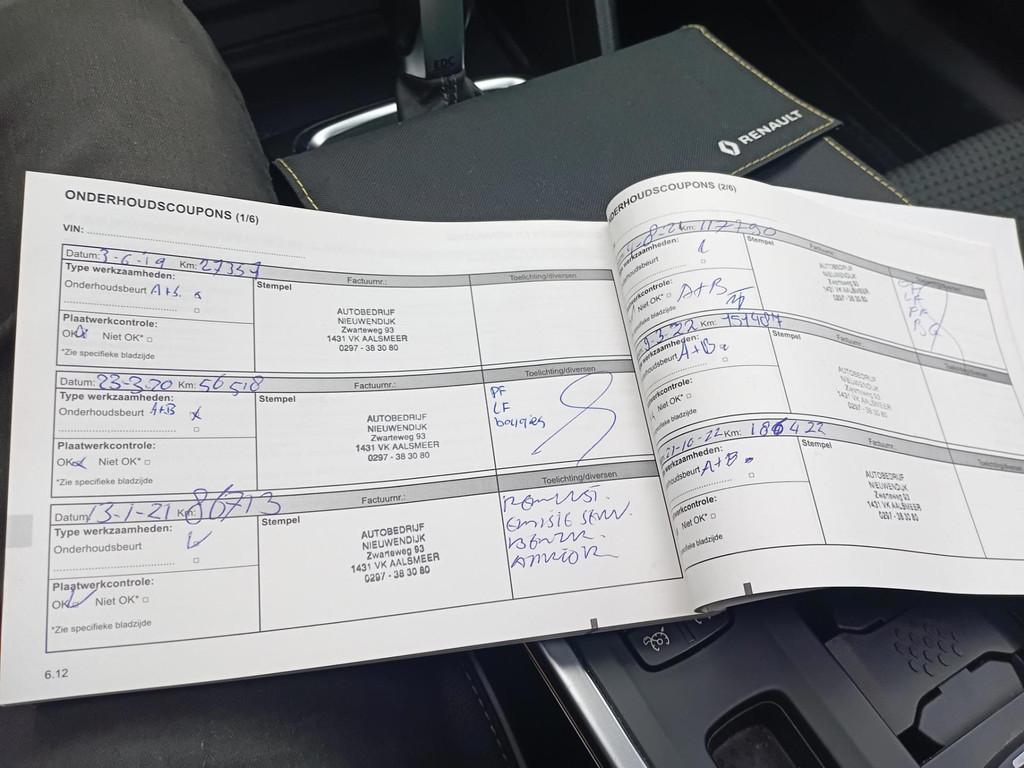 EDC
RENAULT
ONDERHOUDSCOUPONS (1/6)
VIN:
Datum: 3-6-19 Km: 27337
Type werkzaamheden:
Onderhoudsbeurt A+B.
Plaatwerkcontrole:
OK Niet OK*
*Zie specifieke bladzijde
Stempel
Factuurnr.:
Toelichting/diversen
AUTOBEDRIJF
NIEUWENDIJK
Zwarteweg 93
1431 VK AALSMEER
0297 - 38 30 80
Datum: 23-3-20 Km: 56 518
Type werkzaamheden:
Onderhoudsbeurt A+B
Plaatwerkcontrole:
OK Niet OK*
*Zie specifieke bladzijde
Stempel
Factuurnr.:
Toelichting/diversen
AUTOBEDRIJF
NIEUWENDIJK
Zwarteweg 93
1431 VK AALSMEER
0297 - 38 30 80
PF
LF
bougies
Datum 13-1-21 Km: 86713
Type werkzaamheden:
Onderhoudsbeurt
Plaatwerkcontrole:
OK Niet OK*
*Zie specifieke bladzijde
Stempel
Factuurnr.:
Toelichting/diversen
AUTOBEDRIJF
NIEUWENDIJK
Zwarteweg 93
1431 VK AALSMEER
0297 - 38 30 80
6.12
DERHOUDSCOUPONS (2/6)
-8-21 Km: 117790
werkzaamheden:
houdsbeurt
werkcontrole:
Niet OK* A+B
specifieke bladzijde
Stempel
Factuurnr.:
AUTOBEDRIJF
NIEUWENDIJK
Zwarteweg 93
1431 VK AALSMEER
0297 - 38 30 80
LF
FF
9-3-22 Km: 151484
werkzaamheden:
houdsbeurt A+B
werkcontrole:
Niet OK*
specifieke bladzijde
Stempel
Factuurnr.:
Toelichting/diversen
AUTOBEDRIJF
NIEUWENDIJK
Zwarteweg 93
1431 VK AALSMEER
0297 - 38 30 80
21-10-22 Km: 186422
werkzaamheden:
houdsbeurt A+B
werkcontrole:
Niet OK*
specifieke bladzijde
Stempel
Factuurnr.:
AUTOBEDRIJF
NIEUWENDIJK
Zwarteweg 93
1431 VK AALSMEER
0297 - 38 30 80